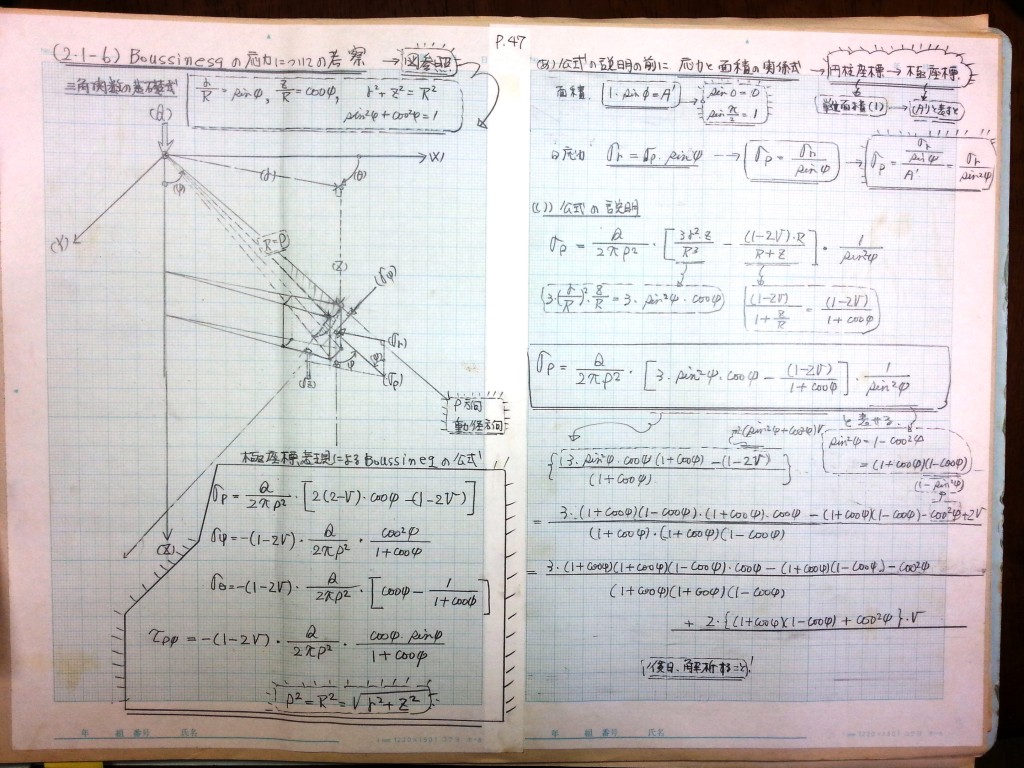 P.47
(2-1-6) Boussinesqの応力についての考察 → 図参照
三角関数の基礎式
r/R = sinφ, z/R = cosφ, r²+z² = R²
sin²φ + cos²φ = 1
(Q)
(X)
(r)
(θ)
(φ)
(Y)
R=ρ
(Z)
(σφ)
(σr)
(σρ)
φ
ρ方向
動径方向
(Z)
極座標表現によるBoussinesqの公式
σρ = Q/2πρ² · [2(2-ν)·cosφ-(1-2ν)]
σφ = -(1-2ν) · Q/2πρ² · cos²φ/1+cosφ
σθ = -(1-2ν) · Q/2πρ² · [cosφ - 1/1+cosφ]
τρφ = -(1-2ν) · Q/2πρ² · cosφ·sinφ/1+cosφ
ρ² = R² = √r²+z²
公式の説明の前に 応力と面積の関係式 → 円柱座標 → 極座標
面積: 1·sinφ = A' → sin0 = 0
sin π/2 = 1
単位面積(1) → (A')と表すと
応力 σr = σρ·sinφ → σρ = σr/sinφ → σρ = σr/sinφ/A' = σr/sin²φ
公式の説明
σρ = Q/2πρ² · [3r²·z/R³ - (1-2ν)·R/R+z] · 1/sin²φ
3·(r/R)²·z/R = 3·sin²φ·cosφ
(1-2ν)/1+z/R = (1-2ν)/1+cosφ
σρ = Q/2πρ² · [3·sin²φ·cosφ - (1-2ν)/1+cosφ] · 1/sin²φ
と表せる。
=2(sin²φ+cos²φ)ν
sin²φ = 1-cos²φ
= (1+cosφ)(1-cosφ)
{3·sin²φ·cosφ(1+cosφ) -(1-2ν)/(1+cosφ)}
(1-sin²φ)
= 3·(1+cosφ)(1-cosφ)·(1+cosφ)·cosφ -(1+cosφ)(1-cosφ)-cos²φ+2ν/(1+cosφ)·(1+cosφ)(1-cosφ)
= 3·(1+cosφ)(1+cosφ)(1-cosφ)·cosφ -(1+cosφ)(1-cosφ)-cos²φ/(1+cosφ)(1+cosφ)(1-cosφ)
+ 2·{(1+cosφ)(1-cosφ)+cos²φ}·ν
後日、解析すること!
年 組 番号 氏名
年 組 番号 氏名